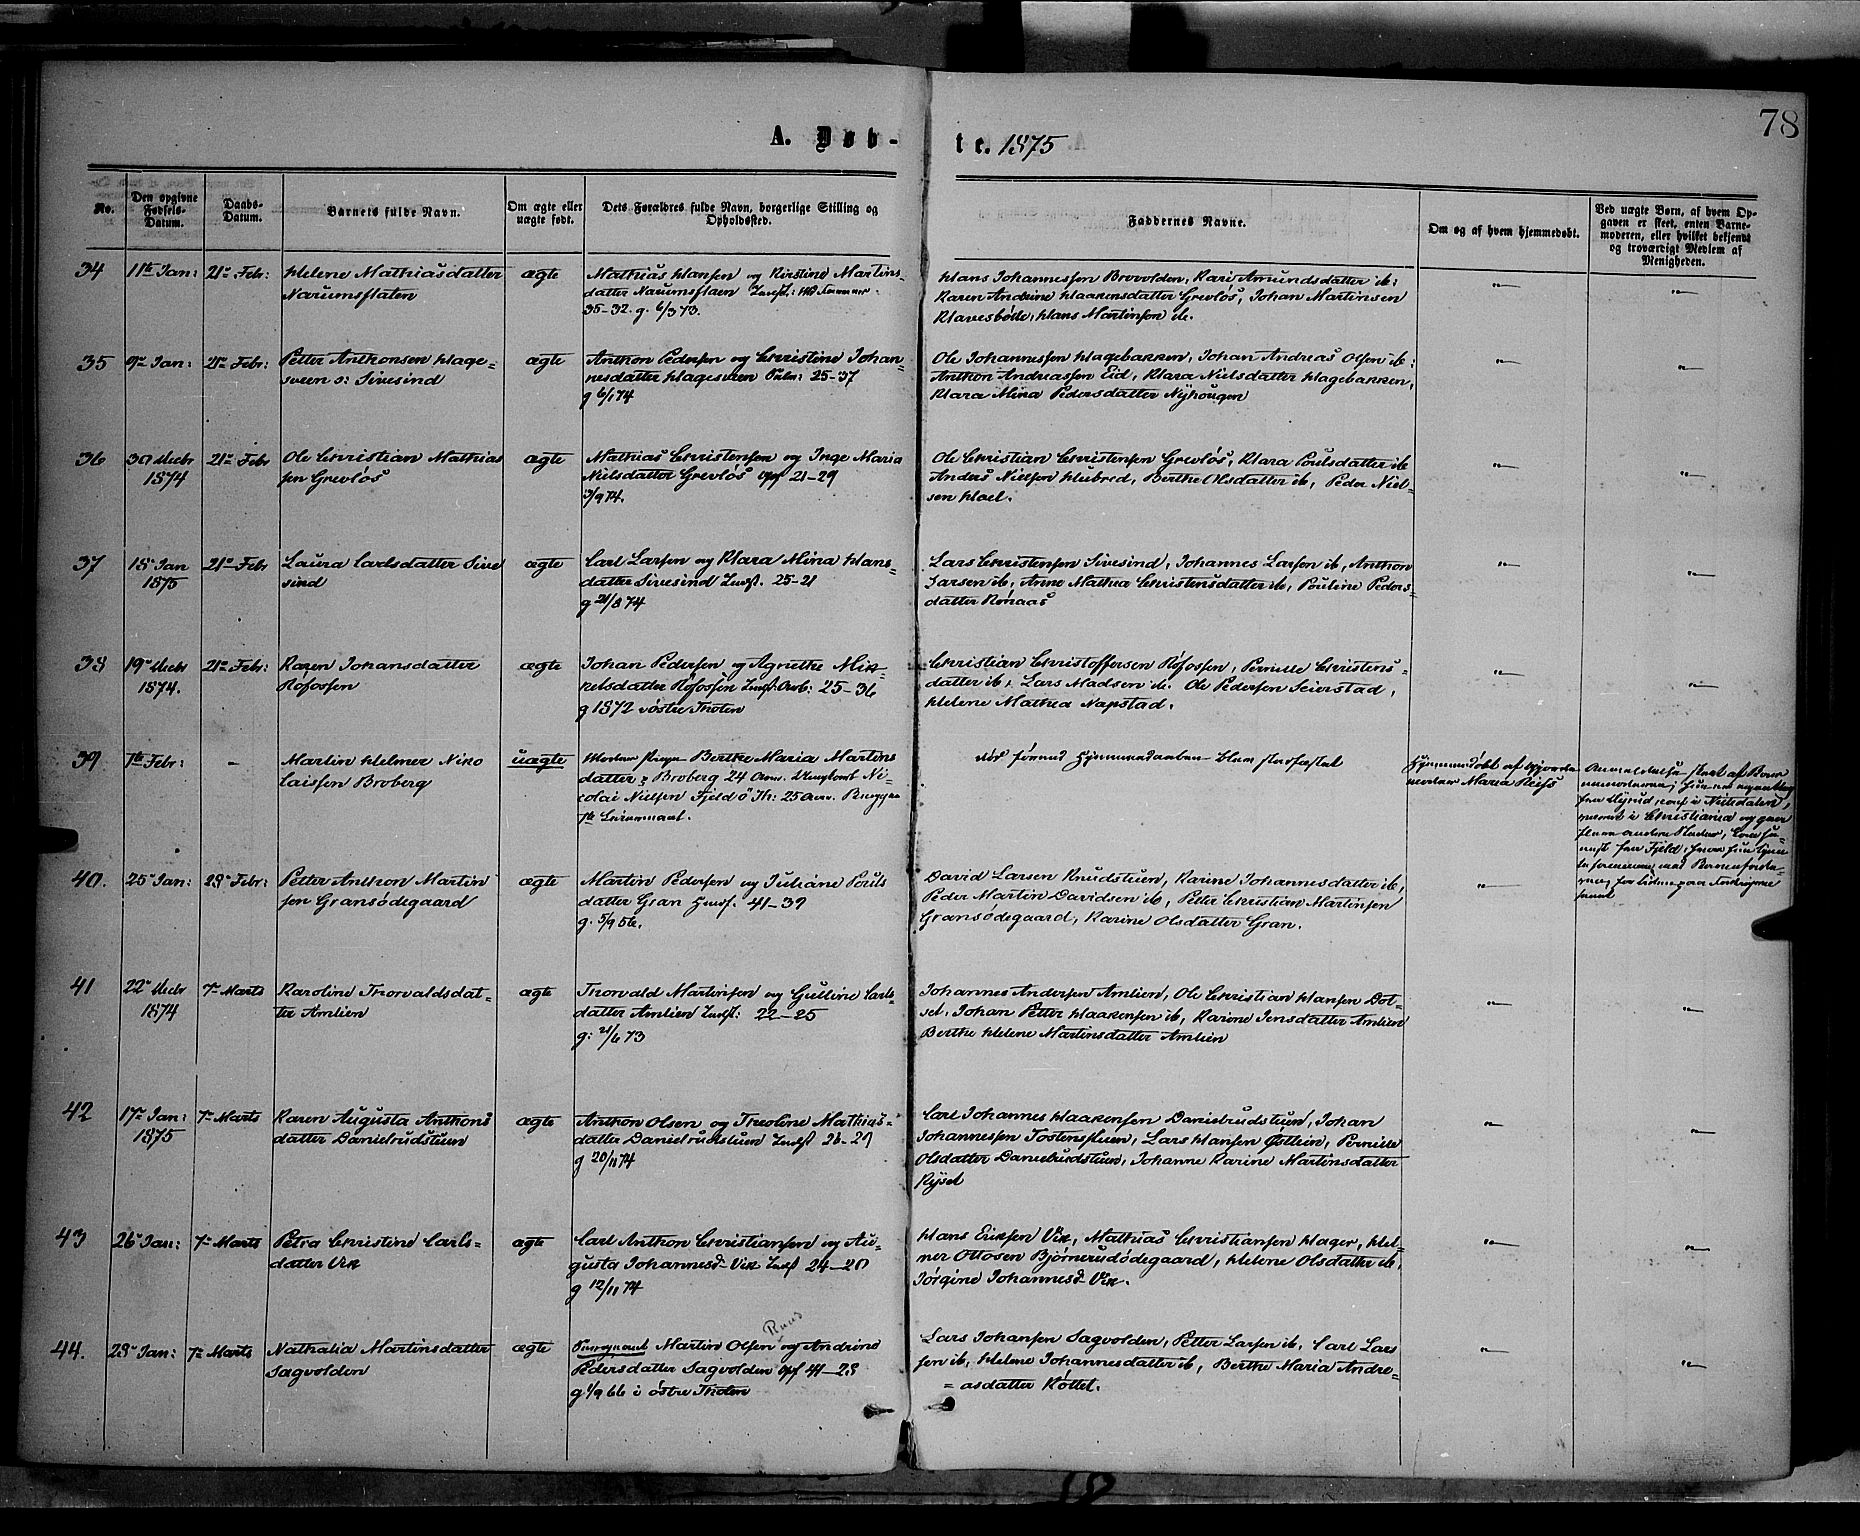 78
A. Døb-
te. 1875
No.
Den opgivne Fødsels-Datum.
Daabs-Datum.
Barnets fulde Navn.
Om ægte eller uægte født.
Dets Forældres fulde Navn, borgerlige Stilling og Opholdssted.
Faddernes Navne.
Om og af hvem hjemmedøbt.
Ved uægte Børn, af hvem Op-
gaven er skeet, enten Barne-
moderen, eller hvilket bekjendt
og troværdigt Medlem af
Menigheden.
34 11te Jan: 21de Febr: Helene Mathiasdatter
Narumsflaten
ægte
Mathias Hansen og Kirstine Martins-
datter Narumsflaen Indst:
35-32. g. 6/3 73.
Hans Johannessen Brovolden, Kari Amundsdatter ib:
Karen Andrine Haakensdatter Grevløs, Johan Martinsen
Klavesbøle, Hans Martinsen ib.
—"— —"—
35 9de Jan: 21de Febr: Petter Anthonsen Hage-
sveen o: Sivesind
ægte
Anthon Pedersen og Christine Johan-
nesdatter Hagesveen 25-37
g 6/1 74
Ole Johannessen Hagebakken, Johan Andreas Olsen ib:
Anthon Andreassen Eid, Klara Nielsdatter Hagebakken,
Klara Mina Pedersdatter Nyhougen
—"— —"—
36 30 Decbr 1874 21de Febr Ole Christian Mathias
sen Grevløs
ægte
Mathias Christensen og Inge Maria
Nielsdatter Grevløs 21-29
3/9 74.
Ole Christian Christensen Grevløs, Klara Poulsdatter ib
Anders Nielsen Hubred, Berthe Olsdatter ib, Peder Niel-
sen Hoel.
—"— —"—
37 18de Jan 1875 21de Febr Laura Carlsdatter Sive
sind
ægte
Carl Larsen og Klara Mina Hans-
datter Sivesind Indst. 25-21
g 21/8 74
Lars Christensen Sivesind, Johannes Larsen ib, Anthon
Larsen ib, Anne Mathea Christensdatter ib, Pouline Peders-
datter Rønaas
—"— —"—
38 19de Decbr 1874. 21de Febr: Karen Johansdatter
Røfossen
ægte
Johan Pedersen og Agnethe Mik-
kelsdatter Røfossen Indst: Arb: 25-36
g 1872 i østre Thoten
Christian Christoffersen Røfossen, Pernille Christens-
datter ib, Lars Madsen ib. Ole Pedersen Seierstad,
Helene Mathea Napstad.
—"— —"—
39 1ste Febr: - Martin Helmer Niko
laisen Broberg
uægte
Pige Berthe Maria Martins
datter Broberg 24 Ungkarl Ni-
colai Nielsen Fjeld Ø Th: 25 Begges
1ste Leiermaal.
død førend Hjemmedaaben blev stadfæstet
Hjemmedøbt af Gjorde-
moder Maria Reiss
Anmeldelse skeet af Bar-
nemoderen;
40. 25de Jan: 28de Febr: Petter Anthon Martin
sen Gransødegaard
ægte
Martin Pedersen og Juliane Pouls
datter Gran Husf. 41-39
g. 5/9 56.
David Larsen Knudstuen, Karine Johannesdatter ib,
Peder Martin Davidsen ib, Peter Christian Martinsen
Gransødegaard, Karine Olsdatter Gran.
—"—
41 22de Decbr 1874 7de Marts Karoline Thorvaldsdat-
ter Amlien
ægte
Thorvald Martinsen og Gulline Carls-
datter Amlien Indst: 22-25
g: 21/6 73
Johannes Andersen Amlien, Ole Christian Hansen Dot-
set, Johan Petter Haakensen ib, Karine Jensdatter Amlien
Berthe Helene Martinsdatter Amlien
—"— —"—
42 17de Jan: 1875 7de Marts Karen Augusta Anthons
datter Danielrudstuen
ægte
Anthon Olsen og Theoline Mathias-
datter Danielrudstuen Indst 26-27
g 20/11 74
Carl Johannes Haakensen Danielrudstuen, Johan
Johannessen Tostensstuen, Lars Hansen Østlien, Pernille
Olsdatter Danielrudstuen, Johanne Karine Martinsdatter
Ryset
—"— —"—
43 26de Jan: 7de Marts Petra Christine Carls-
datter Vik
ægte
Carl Anthon Christiansen og Au-
gusta Johannesd. Vik Indst 24-20
g 12/11 74
Hans Eriksen Vik, Mathias Christiansen Hager, Hel-
mer Ottosen Bjørnerudødegaard, Helene Olsdatter ib,
Jørgine Johannesd Vik.
—"— —"—
44. 28de Jan: 7de Marts Nathalia Martinsdatter
Sagvolden
ægte
Ruud
Martin Olsen og Andrine
Pedersdatter Sagvolden 41-28
g 1/9 66 i østre Thoten
Lars Johansen Sagvolden, Petter Larsen ib, Carl Lars
sen ib, Helene Johannesdatter ib, Berthe Maria Andre-
= asdatter Røttet.
—"— —"—